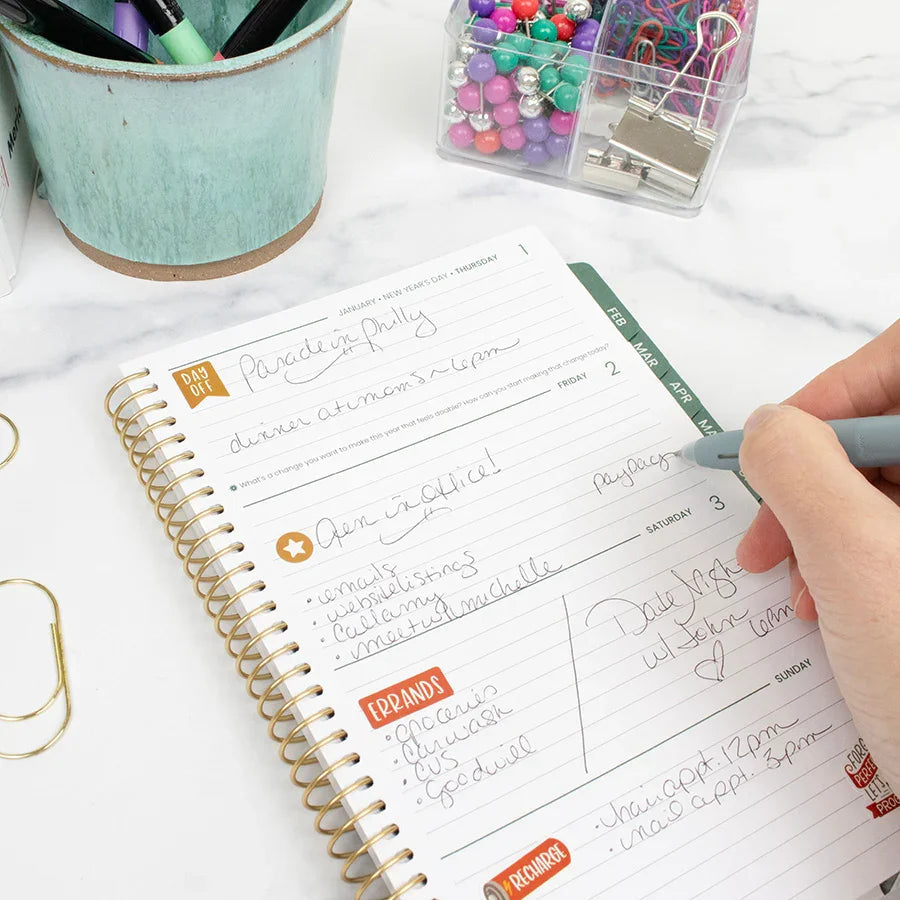 JANUARY • NEW YEAR'S DAY • THURSDAY 1
DAY
OFF
Parade in Philly
dinner at moms ~ 6pm
What's a change you want to make this year that feels doable? How can you start making that change today?
FRIDAY 2
in Office!
payday
• emails
• website listings
• call amy
• meet w/ michelle
SATURDAY 3
ERRANDS
• groceries
• car wash
• CVS
• goodwill
Date Night
w/ John
SUNDAY
• hair appt. 12pm
• nail appt. 3pm
RECHARGE
FEB
MAR
APR
MA